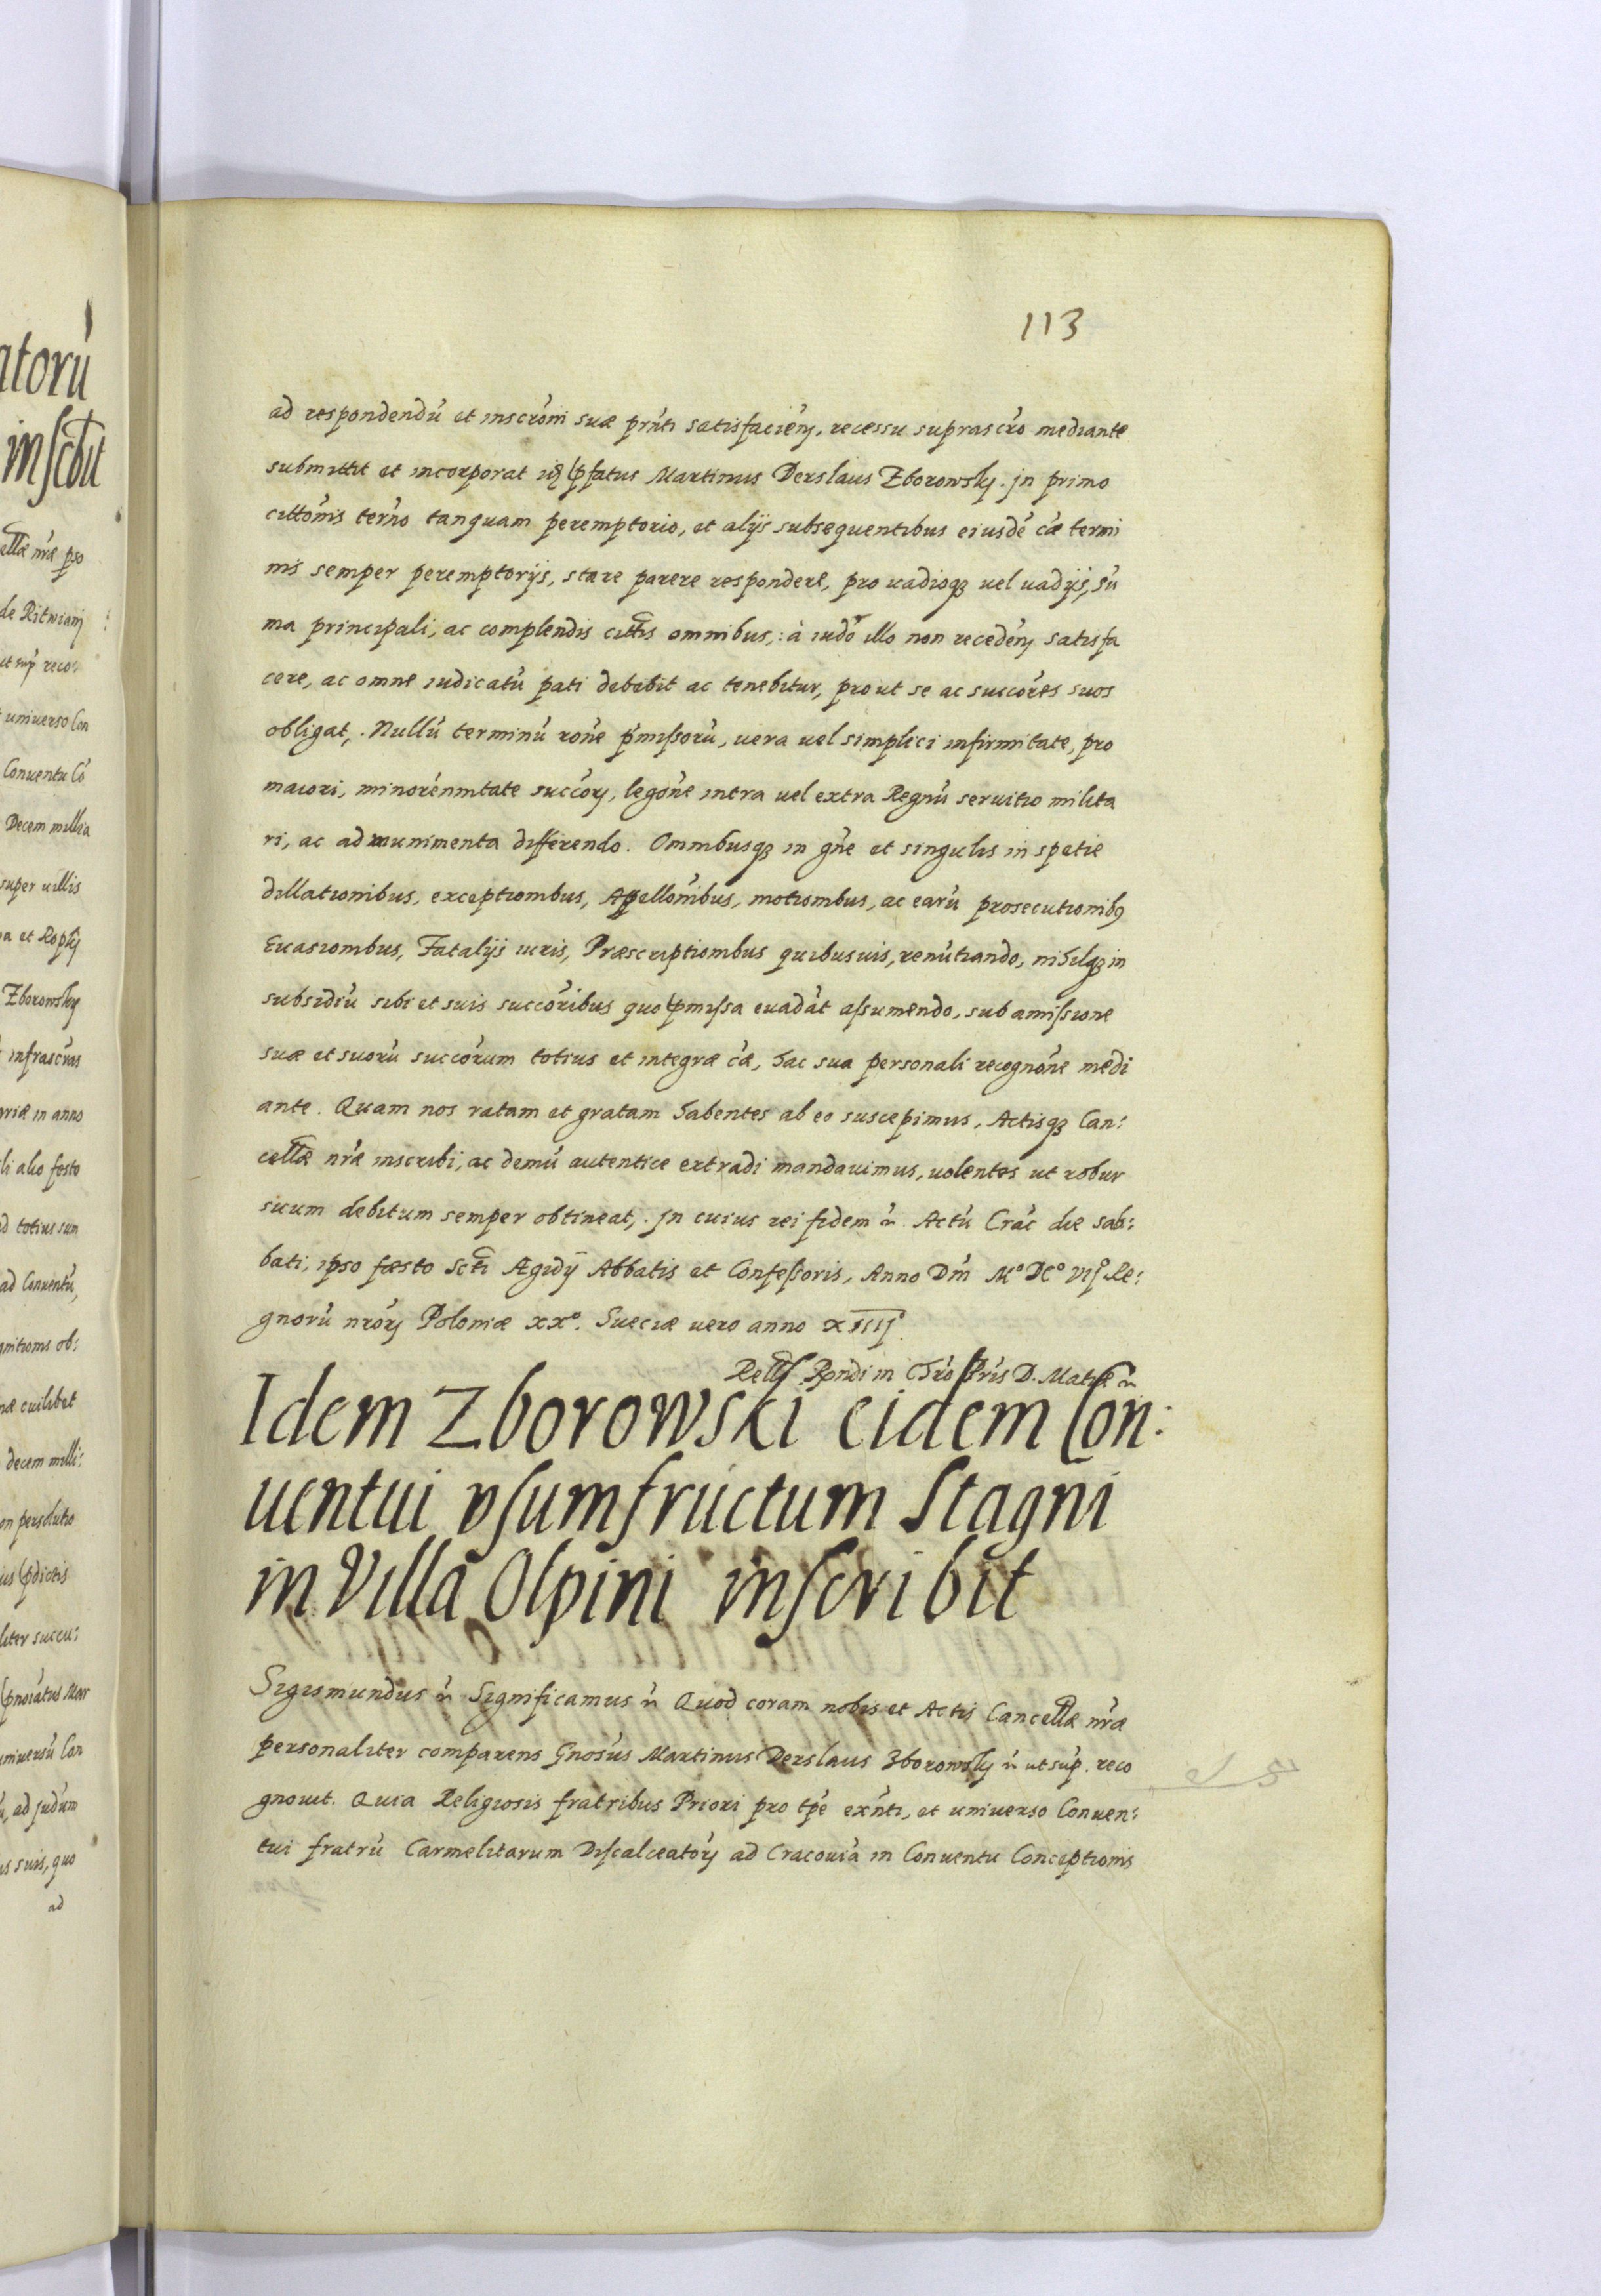 113
ad respondendú et inscróni suæ prńti satisfacién, recessu suprascŕo mediante
submittit et incorporat idē pfatus Martinus Derslaus Zborowsky. jn primo
cittónis terńo tanquam peremptorio, et alijs subsequentibus eiusdé cǽ termi
nis semper peremptorijs, stare parere respondere, pro uadioq3 uel uadijs, sú
ma principali, ac complendis cittis omnibus, à iudó illo non recedén satisfa
cere, ac omne iudicatú pati debebit ac tenebitur, prout se ac succóres suos
obligat,. Nullú terminú róne ṕmissorú, uera uel simplici infirmitate, pro
maiori, minoré nnitate succory, legóne intra uel extra Regnú seruitio milita
ri, ac ad munimenta differendo. Omnibusq3 in gńe et singulis in spetie
dillationibus, exceptionibus, Apellónibus, motionibus, ac earú prosecutionib9
Euasionibus, Fatalijs iuris, Præscriptionibus quibusuis, renútiando, nihilq3 in
subsidiú sibi et suis succóribus quo pmissa euadát assumendo, sub amissione
suæ et suorú succórum totius et integræ cǽ, hac sua personali recognóne medi
ante. Quam nos ratam et gratam habentes ab eo suscepimus, Actisq3 Can:
cellæ nŕæ inscribi, ac demú autentice extradi mandauimus, uolentes ut robur
suum debitum semper obtineat,. jn cuius rei fidem ñ Actú Crać die sab:
bati, ipso fæsto Scti Ægidÿ Abbatis et Confessoris, Anno Dńi M° DC° VIJ° Re:
gnorú nrory Poloniæ xx°. Sueciæ uero anno xiiij°.
Rella Rndi in Chŕo Pris D. Mathæ ñ
Idem Zborowski eidem Con:
uentui usumfructum Stagni
in Villa Olpini inscribit
Sigismundus ñ Significamus ñ Quod coram nobis et Actis Cancellæ nŕæ
personaliter comparens Gnosús Martinus Derslaus Zborowsky ñ ut súp. reco
gnouit. Quia Religiosis fratribus Priori pro tpé exńti, et uniuerso Conuen:
tui fratrú Carmelitarum Discalceatory ad Cracouiá in Conuentu Conceptionis